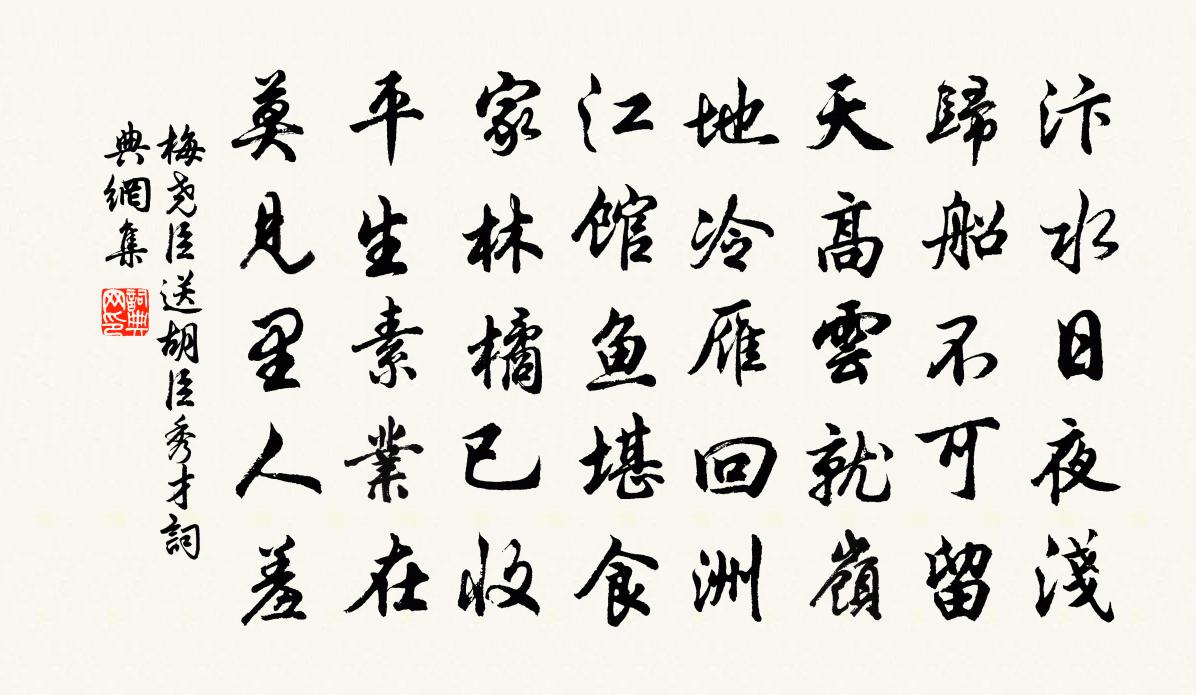 汴水日夜淺
歸船不可留
天高雲就嶺
地冷雁回洲
江館魚堪食
家林橘已收
平生素業在
莫見里人羞
梅堯臣送胡臣秀才詞
典網集
詞典網印